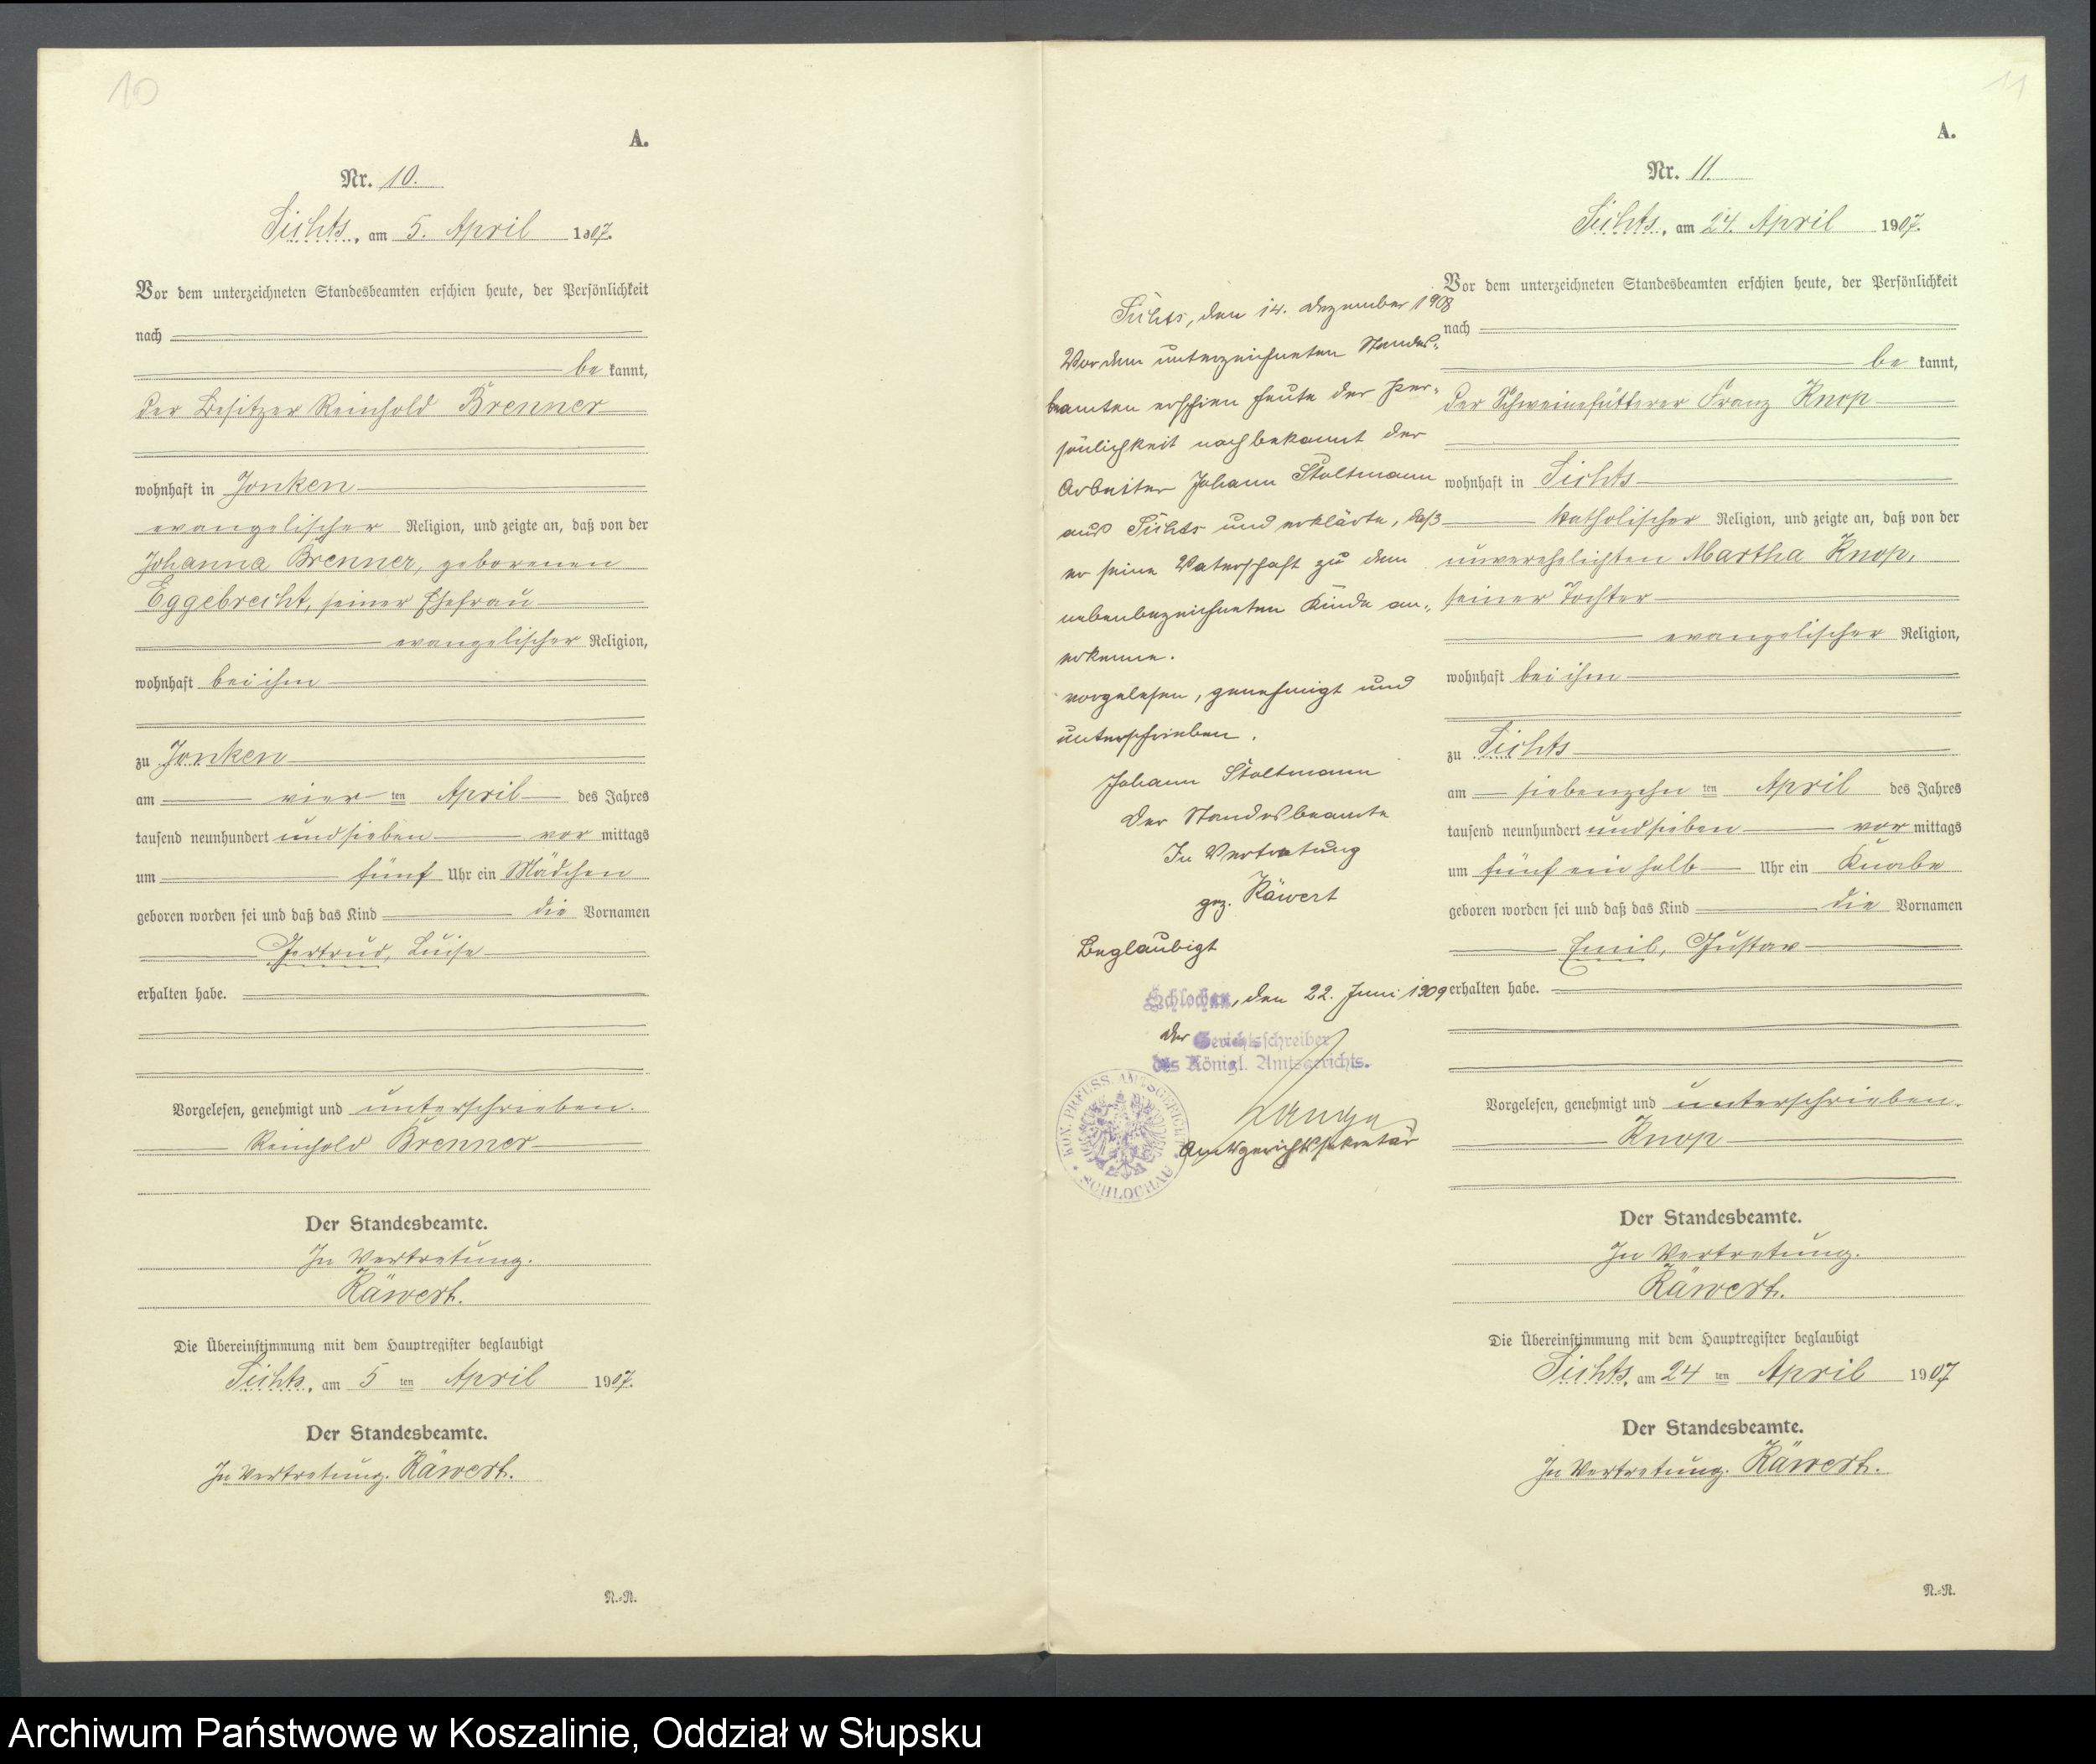 10
A.
Nr. 10.
Sichts, am 5. April 1907.
Vor dem unterzeichneten Standesbeamten erschien heute, der Persönlichkeit
nach
be kannt,
der Besitzer Reinhold Brenner
wohnhaft in Jonken
evangelischer Religion, und zeigte an, daß von der
Johanna Brenner, geborenen
Eggebrecht, seiner Ehefrau
evangelischer Religion,
wohnhaft bei ihm
zu Jonken
am vier ten April des Jahres
tausend neunhundert und sieben vor mittags
um fünf Uhr ein Mädchen
geboren worden sei und daß das Kind die Vornamen
Gertrud, Luise
erhalten habe.
Vorgelesen, genehmigt und unterschrieben.
Reinhold Brenner
Der Standesbeamte.
In Vertretung.
Räwert.
Die Übereinstimmung mit dem Hauptregister beglaubigt
Sichts, am 5 ten April 1907.
Der Standesbeamte.
In Vertretung. Räwert.
N.-R.
Sichts, den 14. Dezember 1908
Vor dem unterzeichneten Standes-
beamten erschien heute der Per-
sönlichkeit nach bekannt der
Arbeiter Johann Stoltmann
aus Sichts und erklärte, daß
er seine Vaterschaft zu dem
nebenbezeichneten Kinde an-
erkenne.
vorgelesen, genehmigt und
unterschrieben.
Johann Stoltmann
Der Standesbeamte
In Vertretung
gez. Räwert
Beglaubigt
Schlochau, den 22. Juni 1909
Der Gerichtsschreiber
des Königl. Amtsgerichts.
Amtsgerichtssekretär
KÖN. PREUSS. AMTSGERICHT
SCHLOCHAU
11
A.
Nr. 11.
Sichts, am 24. April 1907.
Vor dem unterzeichneten Standesbeamten erschien heute, der Persönlichkeit
nach
be kannt,
der Schweinefütterer Franz Knop
wohnhaft in Sichts
katholischer Religion, und zeigte an, daß von der
unverehelichten Martha Knop,
seiner Tochter
evangelischer Religion,
wohnhaft bei ihm
zu Sichts
am siebenzehn ten April des Jahres
tausend neunhundert und sieben vor mittags
um fünf ein halb Uhr ein Knabe
geboren worden sei und daß das Kind die Vornamen
Emil, Gustav
erhalten habe.
Vorgelesen, genehmigt und unterschrieben.
Knop
Der Standesbeamte.
In Vertretung.
Räwert.
Die Übereinstimmung mit dem Hauptregister beglaubigt
Sichts, am 24 ten April 1907
Der Standesbeamte.
In Vertretung. Räwert.
N.-R.
Archiwum Państwowe w Koszalinie, Oddział w Słupsku